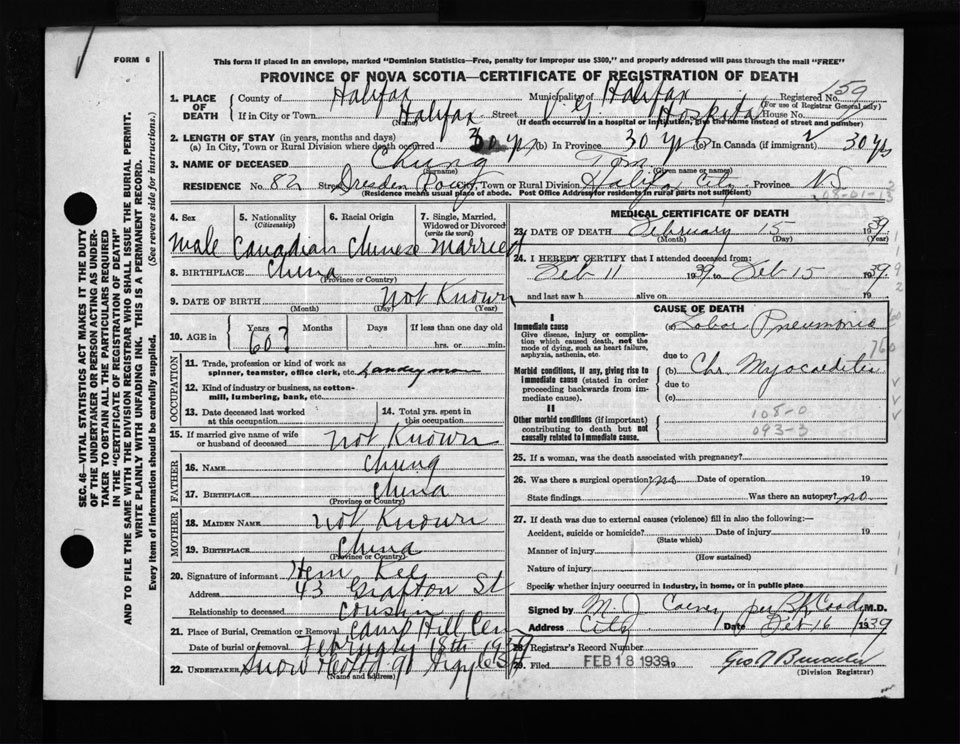 FORM 6
This form if placed in an envelope, marked "Dominion Statistics—Free, penalty for improper use $300," and properly addressed will pass through the mail "FREE"
PROVINCE OF NOVA SCOTIA—CERTIFICATE OF REGISTRATION OF DEATH
1. PLACE OF DEATH County of Halifax Municipality of Halifax Registered No. 159
(For use of Registrar General only)
If in City or Town Halifax Street V G Hospital House No.
(Name) (If death occurred in a hospital or institution, give the name instead of street and number)
2. LENGTH OF STAY (in years, months and days)
(a) In City, Town or Rural Division where death occurred 30 yrs (b) In Province 30 yrs (c) In Canada (if immigrant) 30 yrs
3. NAME OF DECEASED Chung Tom
(Surname) (Given name or names)
RESIDENCE No. 82 Street Dresden Row City, Town or Rural Division Halifax City Province N.S
(Residence means usual place of abode. Post Office Address for residents in rural parts not sufficient)
08-01-13
4. Sex 5. Nationality 6. Racial Origin 7. Single, Married, Widowed or Divorced
(Citizenship) (write the word)
Male Canadian Chinese Married
8. BIRTHPLACE China
(Province or Country)
9. DATE OF BIRTH Not Known
(Month) (Day) (Year)
10. AGE in Years Months Days If less than one day old
60? hrs. or min.
OCCUPATION
11. Trade, profession or kind of work as spinner, teamster, office clerk, etc. Laundryman
12. Kind of industry or business, as cotton-mill, lumbering, bank, etc.
13. Date deceased last worked at this occupation
14. Total yrs. spent in this occupation
15. If married give name of wife or husband of deceased Not Known
FATHER
16. NAME Chung
17. BIRTHPLACE China
(Province or Country)
MOTHER
18. MAIDEN NAME Not Known
19. BIRTHPLACE China
(Province or Country)
20. Signature of informant Hem Kee
Address 43 Grafton St
Relationship to deceased Cousin
21. Place of Burial, Cremation or Removal Camp Hill Cem
Date of burial or removal February 18th 1939
22. UNDERTAKER Snow 90 Argyle St
(Name and address)
MEDICAL CERTIFICATE OF DEATH
23. DATE OF DEATH February 15 1939
(Month) (Day) (Year)
24. I HEREBY CERTIFY that I attended deceased from:
Feb 11 1939 to Feb 15 1939
and last saw h alive on 19
CAUSE OF DEATH
I
Immediate cause
Give disease, injury or complication which caused death, not the mode of dying, such as heart failure, asphyxia, asthenia, etc.
(a) Lobar Pneumonia
due to
Morbid conditions, if any, giving rise to immediate cause (stated in order proceeding backwards from immediate cause).
(b) Chr. Myocarditis
due to
(c)
II
Other morbid conditions (if important) contributing to death but not causally related to immediate cause.
108-0
093-3
25. If a woman, was the death associated with pregnancy?
26. Was there a surgical operation? no Date of operation 19
State findings Was there an autopsy? no
27. If death was due to external causes (violence) fill in also the following:—
Accident, suicide or homicide? Date of injury 19
(State which)
Manner of injury
(How sustained)
Nature of injury
Specify whether injury occurred in industry, in home, or in public place
Signed by M. J. per M.D.
Address City Date Feb 16 1939
28. Registrar's Record Number
29. Filed FEB 18 1939 19
(Division Registrar)
SEC. 46—VITAL STATISTICS ACT MAKES IT THE DUTY
OF THE UNDERTAKER OR PERSON ACTING AS UNDERTAKER TO OBTAIN ALL THE PARTICULARS REQUIRED
IN THE "CERTIFICATE OF REGISTRATION OF DEATH"
AND TO FILE THE SAME WITH THE DIVISION REGISTRAR WHO SHALL ISSUE THE BURIAL PERMIT.
WRITE PLAINLY WITH UNFADING INK. THIS IS A PERMANENT RECORD.
Every item of information should be carefully supplied. (See reverse side for instructions.)